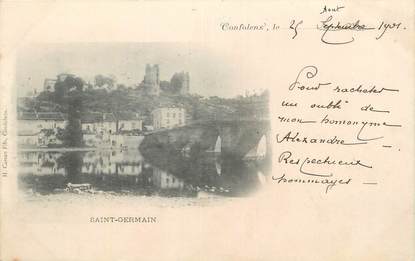 Août
Confolens, le 25 Septembre 1901.
Pour racheter
un oubli de
mon homonyme
Alexandre —
Respectueux
hommages —
SAINT-GERMAIN